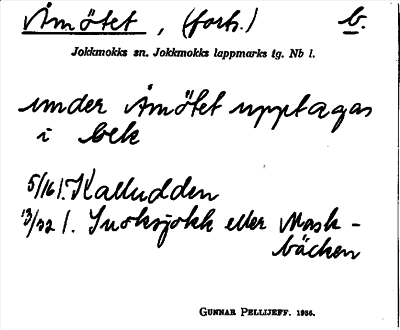 Åmötet, (forts.) b.
Jokkmokks sn. Jokkmokks lappmarks tg. Nb l.
under Åmötet upptagas
i bek
5/16 l. Kalludden
13/32 l. Suoksjokk eller Mask-
bäcken
GUNNAR PELLIJEFF. 1956.